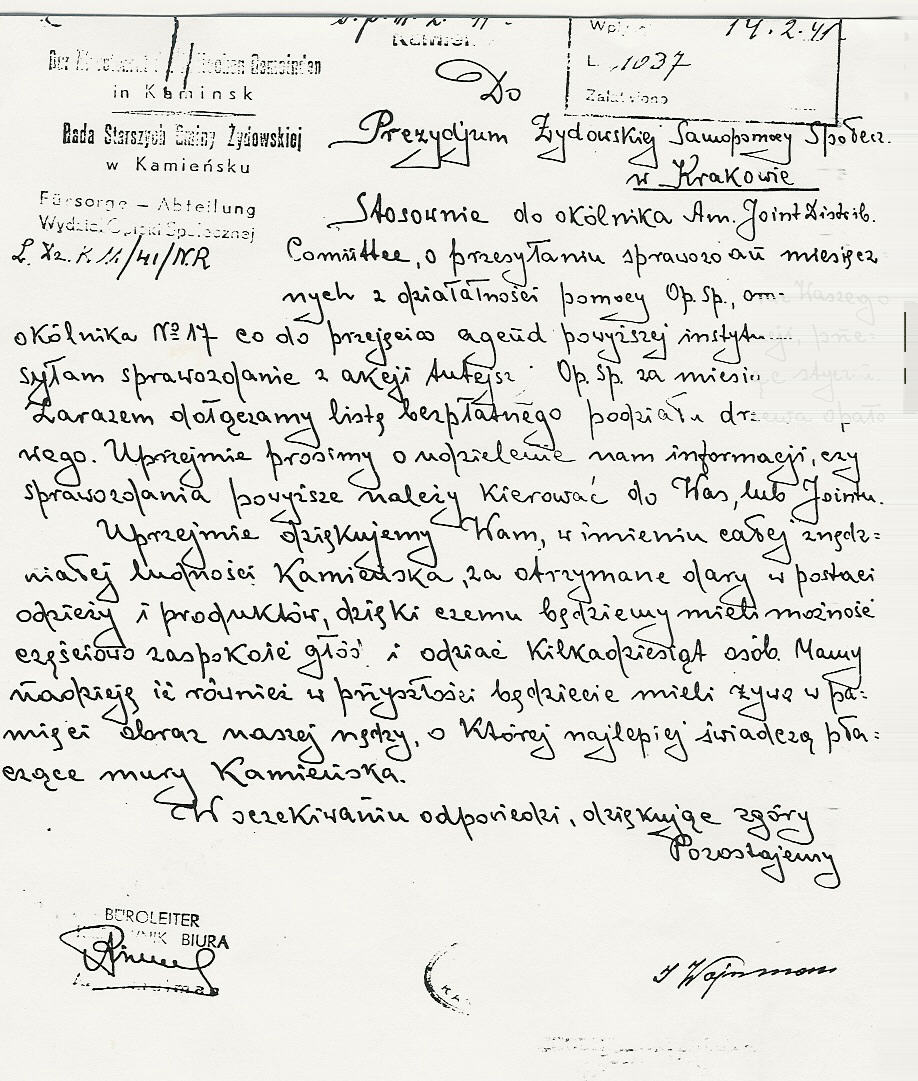 Wpły
14.2.41.
L. 1037
Załatwiono
in Kaminsk
Rada Starszych Gminy Żydowskiej
w Kamieńsku
Fürsorge – Abteilung
Wydział Opieki Społecznej
L. Dz. K 11/41/N.R
Do
Prezydjum Żydowskiej Samopomocy Społecz.
w Krakowie
Stosownie do okólnika Am. Joint Distrib.
Comittee, o przesyłaniu sprawozdań miesięcz
nych z działalności pomocy Op. Sp., Waszego
okólnika № 17 co do przejęcia agend powyższej instytu
syłam sprawozdanie z akcji tutejsz Op. Sp. za miesi
Zarazem dołączamy listę bezpłatnego podziału
wego. Uprzejmie prosimy o udzielenie nam informacji, czy
sprawozdania powyższe należy kierować do Was, lub Jointu.
Uprzejmie dziękujemy Wam, w imieniu całej znędz=
niałej ludności Kamieńska, za otrzymane dary w postaci
odzieży i produktów, dzięki czemu będziemy mieli możność
częściowo zaspokoić głód i odziać kilkadziesiąt osób. Mamy
nadzieję iż również w przyszłości będziecie mieli żywą w pa=
mięci obraz naszej nędzy, o której najlepiej świadczą pła=
czące mury Kamieńska.
W oczekiwaniu odpowiedzi, dziękując zgóry
Pozostajemy
BÜROLEITER
BIURA